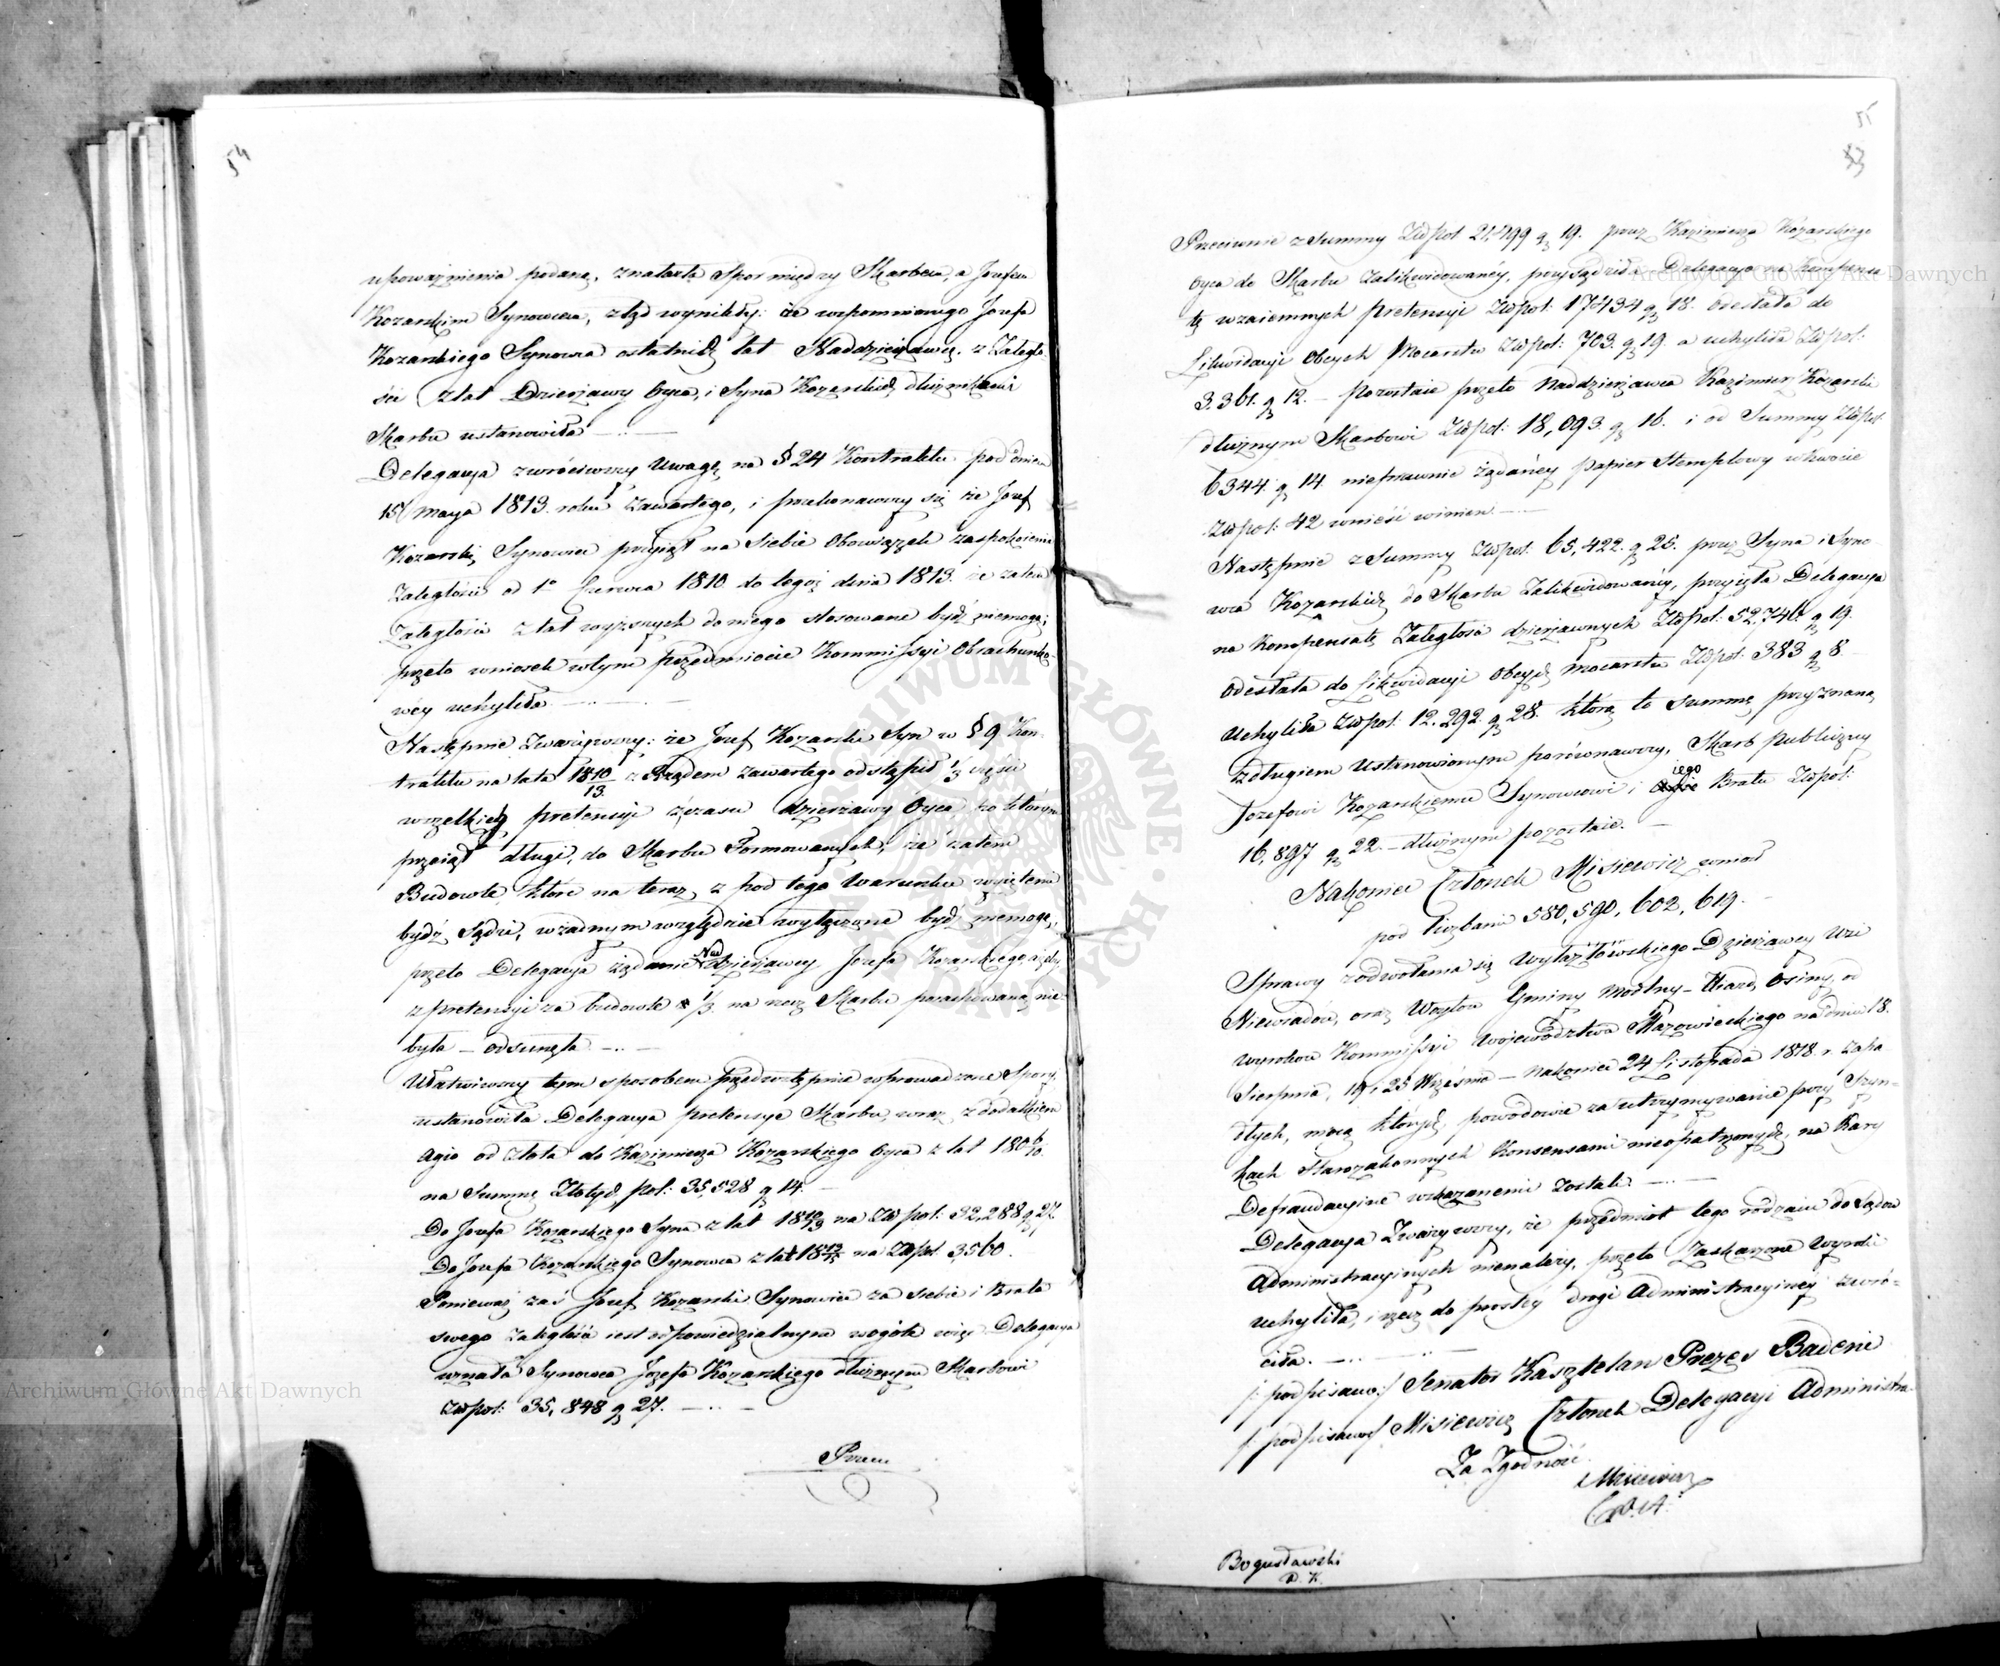 54
upoważnienia podane, znalazła Spor między Skarbem, a Jozefem
Kozarskim Synowcem, ztąd wynikły: że wspomnionego Jozefa
Kozarskiego Synowca ostatnich lat Naddzierżawcę z Zaległo-
ści z lat Dzierżawy Oyca, i Syna Kozarskich, dłużnikiem
Skarbu ustanowiła
Delegacya zwróciwszy uwagę na § 24 Kontraktu pod dniem
15 Maya 1813. roku zawartego, i przekonawszy się że Jozef
Kozarski Synowiec przyjął na siebie Obowiązek zaspokoienia
Zaległości od 1° Czerwca 1810 do tegoż dnia 1813. że zatem
Zaległości z lat wyższych do niego stosowane być niemogą;
przeto wniosek w tym przedmiocie Kommissyi Obrachunko-
wéy uchyliła
Następnie Zważywszy: że Jozef Kozarski Syn w § 9 Kon-
traktu na lata 1810/13. z Rządem zawartego odstąpił 1/3 części
wszelkich pretensyi z czasu dzierżawy Oyca, po którym
przeiął długi, do Skarbu Formowanych, że zatem
Budowle, które na teraz z pod tego Warunku wyięteni
bydź sądzi, w żadnym względzie wyłączone być niemogą,
przeto Delegacya żądanie Naddzierżawcy Jozefa Kozarskiego, ażeby
z pretensyi za budowle 1/3 na rzecz Skarbu porachowaną nie
była – odsunęła
Ułatwiwszy tym sposobem przedwstępnie wprowadzone Spory,
ustanowiła Delegacya pretensye Skarbu, wraz z dodatkiem
agio od złota do Kazimierza Kozarskiego Oyca z lat 1806/10.
na Summę Złotych pol: 35,528 g 14.
Do Jozefa Kozarskiego Syna z lat 1810/13 na Złpol: 32,288 g 27.
Do Jozefa Kozarskiego Synowca z lat 1813/15 na Złpol 3,560.
Ponieważ zaś Jozef Kozarski Synowiec za siebie i Brata
swego zaległość iest odpowiedzialnym wogóle więc Delegacya
uznała Synowca Jozefa Kozarskiego dłużnym Skarbowi
Złpol: 35,848 g 27.
55
53
Przeciwnie z Summy Złpol 21,499 g 19. przez Kazimierza Kozarskiego
Oyca do Skarbu zalikwidowanéy, przysądziła Delegacya na kompensa
tę wzaiemnych pretensyi Złpol: 17434 g 18. odesłała do
Likwidacyi Obcych Mocarstw Złpol: 703. g 19. a uchyliła Złpol:
3.361. g 12. – pozostaie przeto Naddzierżawca Kazimierz Kozarski
dłużnym Skarbowi Złpol: 18,093. g 16. i od Summy Złpol:
6344. g 14 nieprawnie żądanéy papier Stemplowy w kwocie
Złpol: 42 wnieść winien
Następnie z Summy Złpol. 65,422. g 25. przez Syna i Syno-
wca Kozarskich do Skarbu Zalikwidowanéy, przyięła Delegacya
na kompensatę Zaległości dzierżawnych Złpol: 52,746 g 19.
Odesłała do Likwidacyi obcych mocarstw Złpol: 383 g 8.
Uchyliła Złpol. 12.292. g 28. którą to Summę przyznaną
z długiem ustanowionym porównawszy, Skarb publiczny
Jozefowi Kozarskiemu Synowcowi i iego Bratu Złpol:
16,897 g 22. – dłużnym pozostaie.
Nakoniec Członek Misiewicz wniosł
pod liczbami 580, 590, 602, 619.
Sprawy z odwołania się Wytażtowskiego Dzierżawcy Wsi
Niewiadów, oraz Woytów Gminy Modlny – Ujazd, Osiny, od
wyroków Kommissyi Woiewództwa Mazowieckiego na dniu 18.
Sierpnia, 19, i 25 Września – nakoniec 24 Listopada 1818 r. zapa-
dłych, mocą których, powodowie za utrzymywanie przy Szyn-
kach Starozakonnych Konsensami nieopatrzonych, na Kary
Defraudacyine wskazanemi zostali.
Delegacya Zważywszy, że przedmiot tego rodzaiu do Sądów
Administracyinych nienależy, przeto Zaskarżone Wyroki
uchyliła, i rzecz do prostéy drogi Administracyinéy zwró-
ciła.
/: podpisano:/ Senator Kasztelan Prezes Badeni
/: podpisano:/ Misiewicz Członek Delegacyi Administra:
Za Zgodność
Misiewicz
Bogusławski